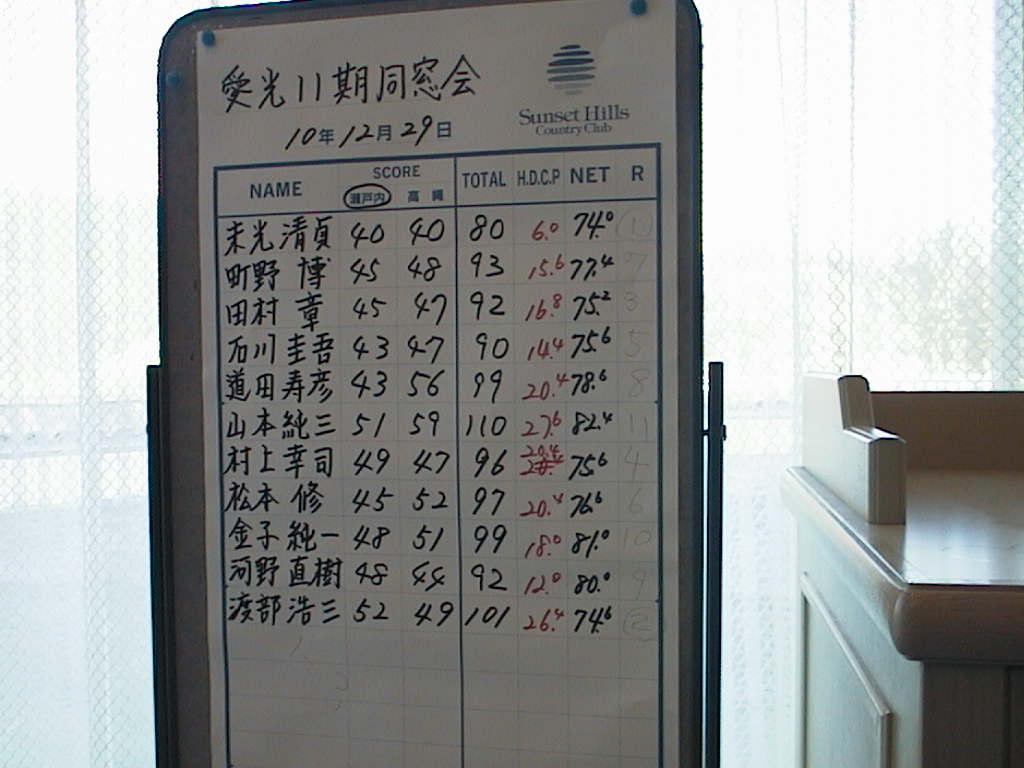 愛光11期同窓会
Sunset Hills
Country Club
10年12月29日
NAME SCORE TOTAL H.D.C.P NET R
瀬戸内 高縄
末光清貞 40 40 80 6.0 74.0 (1)
町野 博 45 48 93 15.6 77.4 7
田村 章 45 47 92 16.8 75.2 3
石川圭吾 43 47 90 14.4 75.6 5
道田寿彦 43 56 99 20.4 78.6 8
山本純三 51 59 110 27.6 82.4 11
村上幸司 49 47 96 20.4 75.6 4
松本 修 45 52 97 20.4 76.6 6
金子純一 48 51 99 18.0 81.0 10
河野直樹 48 44 92 12.0 80.0 9
渡部浩三 52 49 101 26.4 74.6 (2)